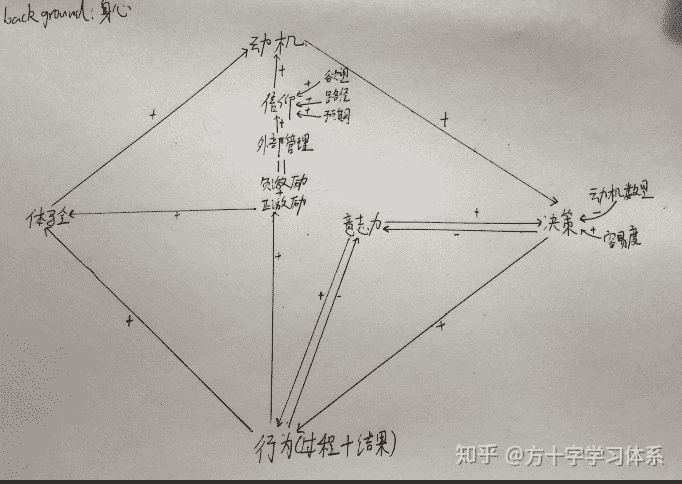 background: 身心
动机
+
信仰
+ 欲望
+ 路径
+ 预期
+
外部管理
负激励
+
正激励
体验
+
+
+
意志力
+
-
决策
动机数量
-
+
容易度
+
+
+
-
+
+
行为(过程+结果)
知乎 @方十字学习体系